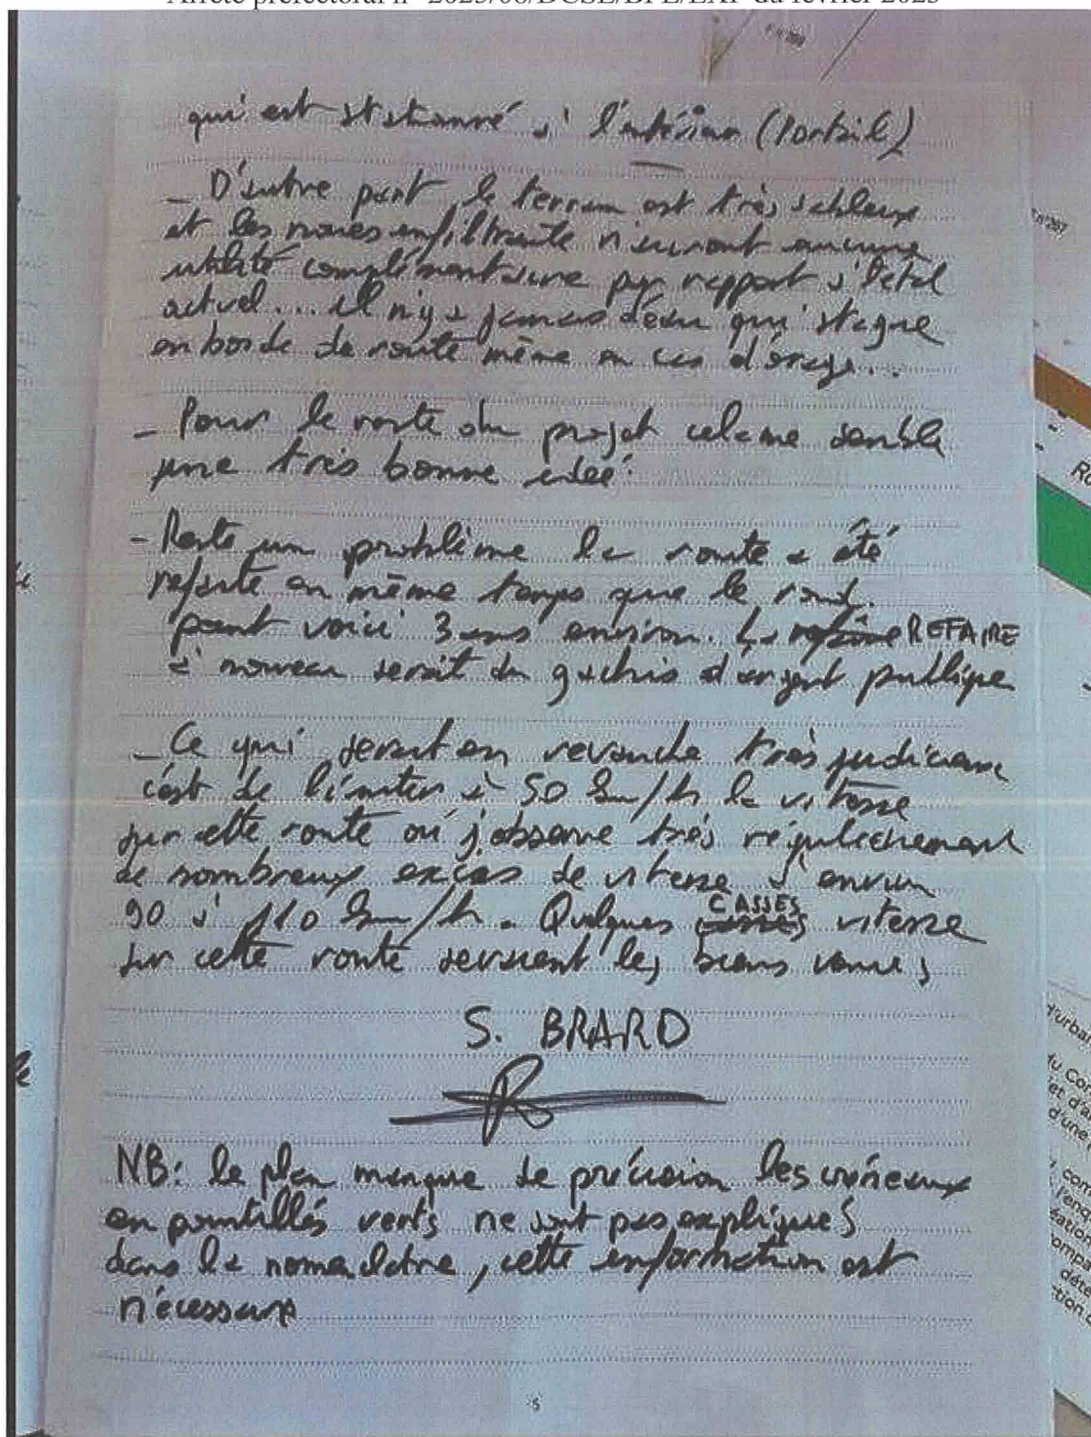 qui est stationné à l'intérieur (Portail)
- D'autre part, le terrain est très sableux
et les noues infiltrante n'auront aucune
utilité complémentaire par rapport à l'état
actuel... il n'y a jamais d'eau qui stagne
en borde de route même en cas d'orage...
- Pour le reste du projet cela me semble
une très bonne idée.
- Reste un problème la route a été
refaite en même temps que le rond.
point voici 3 ans environ. La REFAIRE
à nouveau serait du gachis d'argent publique
- Ce qui serait en revanche très judicieux
c'est de limiter à 50 km/h la vitesse
sur cette route où j'observe très régulièrement
de nombreux excès de vitesse d'environ
90 à 110 km/h. Quelques CASSES vitesse
sur cette route seraient les biens venus
S. BRARD
NB: le plan manque de précision les créneaux
en pointillés verts ne sont pas expliqués
dans la nomenclature, cette information est
nécessaire
5